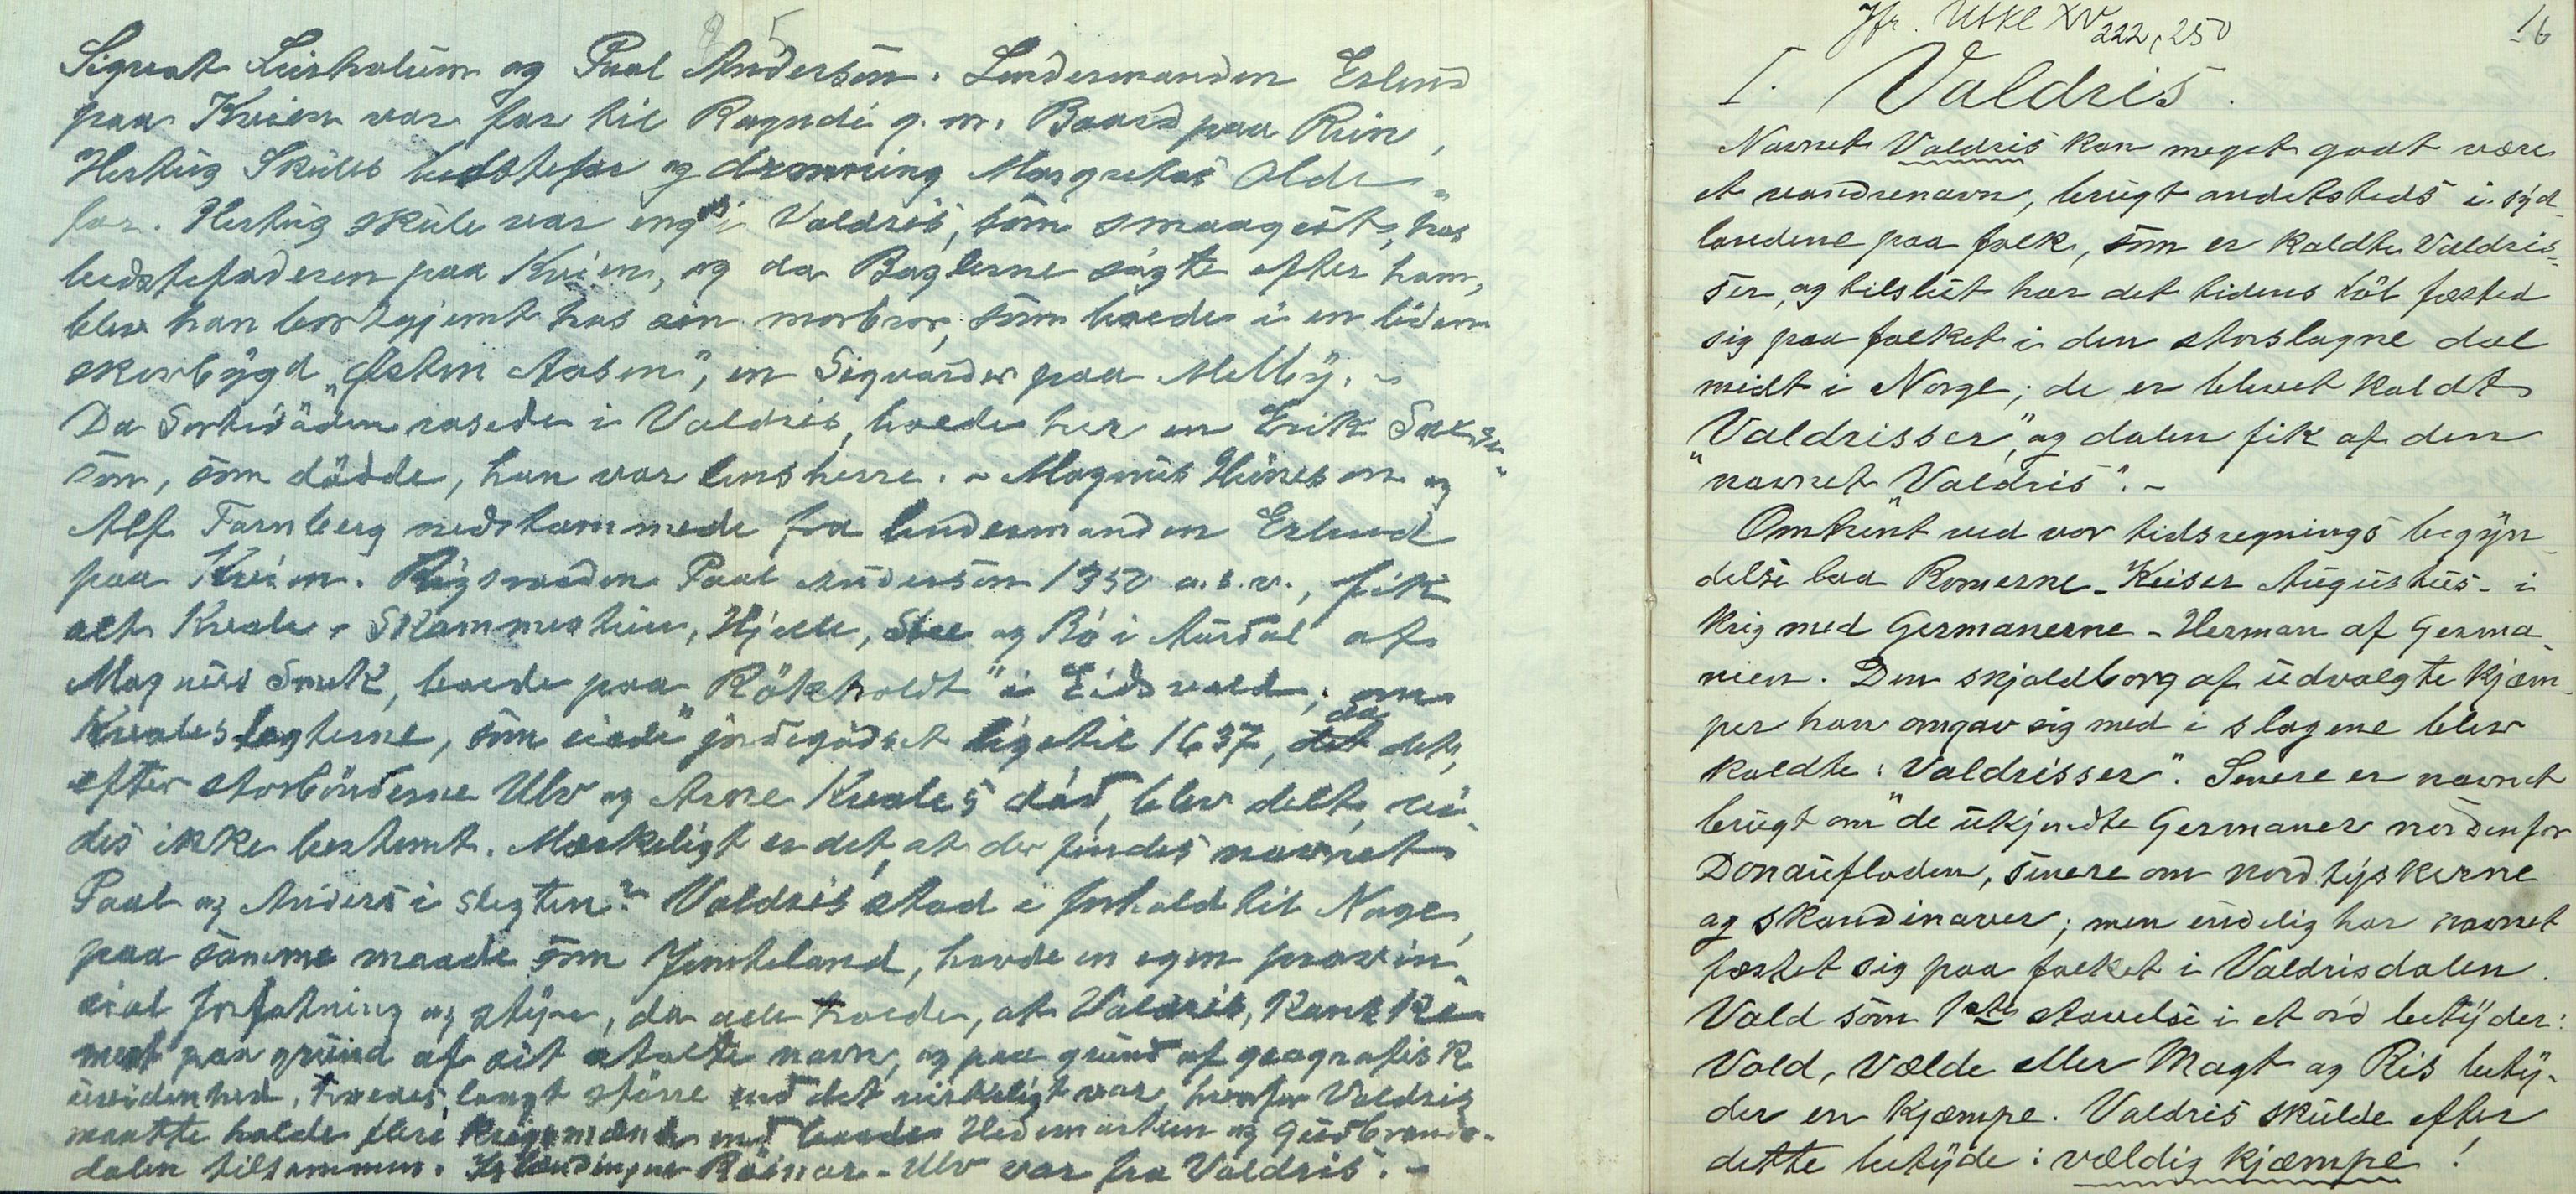 Sigvat Leirholum og Paal Anderson. Lendermanden Erlend
paa Kvien var far til Ragndi g. m. Baard paa Rein,
Hertug Skules bedstefar og dronning Margretas Olde-
far. Hertug Skule var ung i Valdris, som smaagut, hos
bedstefaderen paa Kvien, og da Baglerne søgte efter ham,
blev han bortgjemt hos sin morbror, som boede i en liden
skovbygd "Østen Aasen", en Sigvarder paa Melby. -
Da Sortedøden rasede i Valdris, boede her en Erik
søn, som døde, han var lensherre. - Magnus Huneson og
Alf Tarnberg nedstammede fra lendermanden Erlend
paa Kvien. Rigsraaden Paal Anderson 1350 o.s.v., fik
alt Kvale - Skammestein, Hjelle, Stee og Rø i Aurdal af
Magnus Smek, boede paa "Rökholdt" i Eidsvold; om
Kvaleslægterne, som eiede jordegodset ligetil 1637, da det,
efter storbönderne Ulv og Arne Kvales död, blev delt, vi-
des ikke bestemt. Mærkeligt er det, at der findes navnet
Paal og Anders i slegten? Valdris stod i forhold til Norge,
paa samme maade som Jemteland, havde en egen provin-
cial forfatning og styre, da alle troede, at Valdris, kanske
mest paa grund af sit stolte navn, og paa grund af geografisk
uvidenhed, troedes langt större end det virkeligt var, hvorfor Valdris
maatte holde flere krigsmænd end baade Hedemarken og Gudbrands-
dalen tilsammen. Islændingen Reinar-Ulv var fra Valdris. -
Jfr. Utskl XV 222, 250
16
I. Valdris.
Navnet Valdris kan meget godt være
et vandrenavn, brugt andetsteds i syd-
landene paa folk, som er kaldte Valdris-
ser, og tilslut har det tidens löb fæsted
sig paa folket i den storslagne dal
midt i Norge; de er blevet kaldt
"Valdrisser", og dalen fik af den
navnet "Valdris". -
Omtrent ved vor tidsregnings begyn-
delse laa Romerne - Keiser Augustus - i
krig med Germanerne - Herman af Germa-
nien. Den skjoldborg af udvalgte kjæm-
per han omgav sig med i slagene blev
kaldte: "Valdrisser". Senere er navnet
brugt om de ukjendte Germaner nordenfor
Donaufloden, senere om nordtyskerne
og skandinaver; men endelig har navnet
fæstet sig paa folket i Valdrisdalen.
Vald som 1ste stavelse i et ord betyder:
Vold, Vælde eller Magt og Ris bety-
der en Kjæmpe. Valdris skulde efter
dette betyde: vældig kjæmpe!